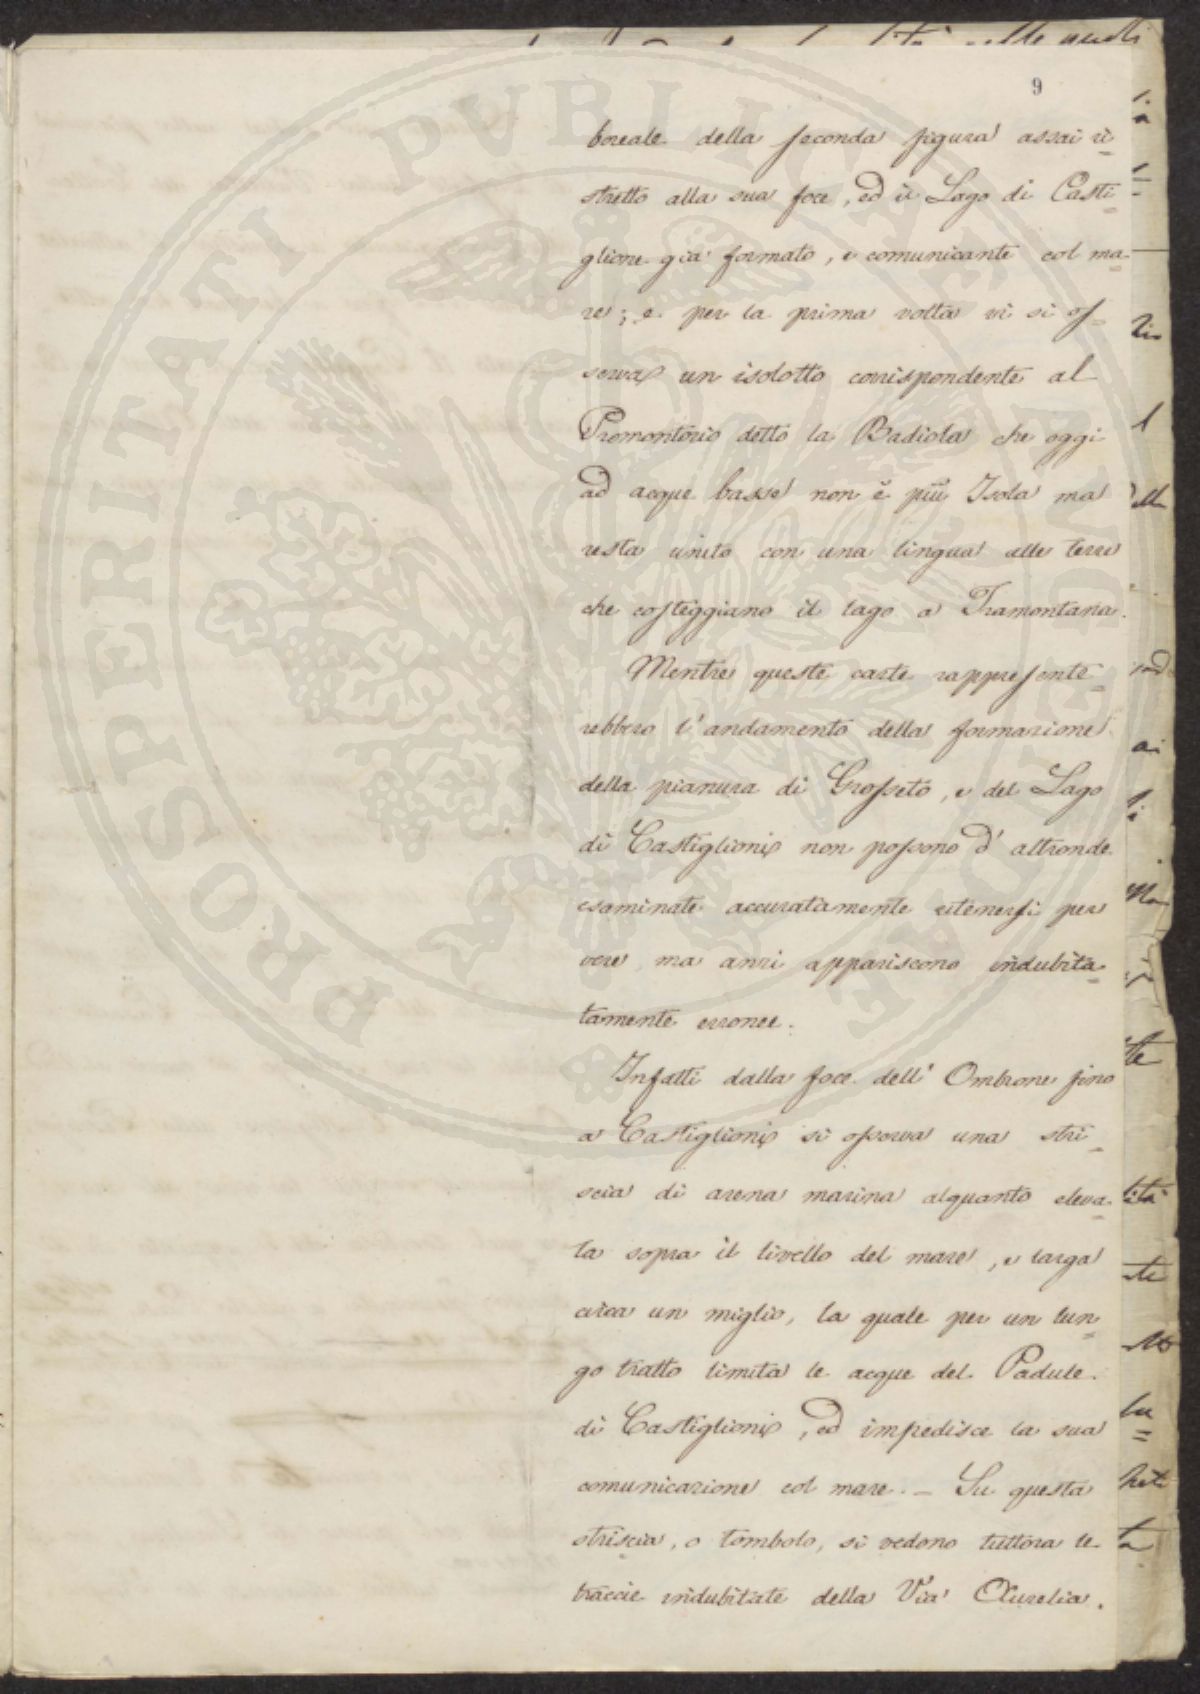 9
boreale della seconda figura assai ri=
stretto alla sua foce, ed il Lago di Casti=
glione già formato, e comunicante col ma=
re; e per la prima volta vi si os=
serva un isolotto corrispondente al
Promontorio detto la Badiola che oggi
ad acque basse non è più Isola ma
resta unito con una lingua alle terre
che costeggiano il lago a Tramontana.
Mentre queste carte rappresente=
rebbero l'andamento della formazione
della pianura di Grosseto, e del Lago
di Castiglione non possono d'altronde
esaminate accuratamente ritenersi per
vere, ma anzi appariscono indubita=
tamente erronee.
Infatti dalla foce dell'Ombrone fino
a Castiglione si osserva una stri=
scia di arena marina alquanto eleva=
ta sopra il livello del mare, e larga
circa un miglio, la quale per un lun=
go tratto limita le acque del Padule
di Castiglione, ed impedisce la sua
comunicazione col mare. – Su questa
striscia, o tombolo, si vedono tuttora le
traccie indubitate della Via Aurelia.
PROSPERITATI PUBLICAE AUGENDAE